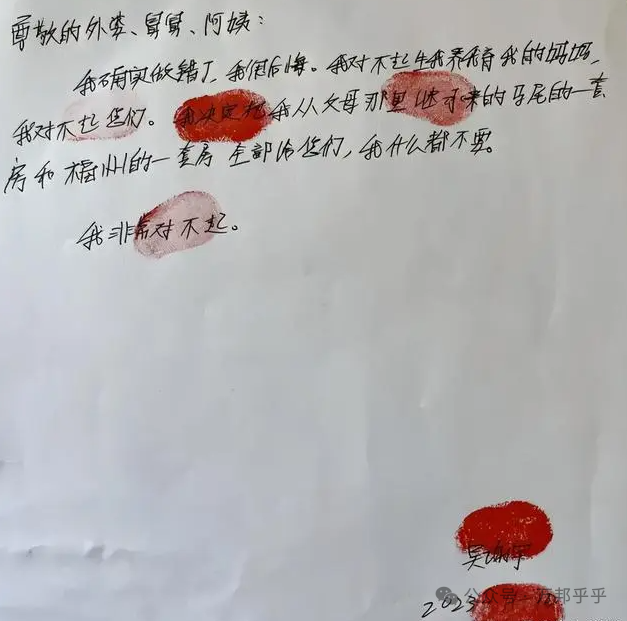 尊敬的外婆、舅舅、阿姨:
我确实做错了,我很后悔。我对不起生我养我育我的妈妈,
我对不起您们。我决定把我从父母那里继承来的马尾的一套
房和福州的一套房全部给您们,我什么都不要。
我非常对不起。
吴谢宇
2023
公众号·万邦乎乎